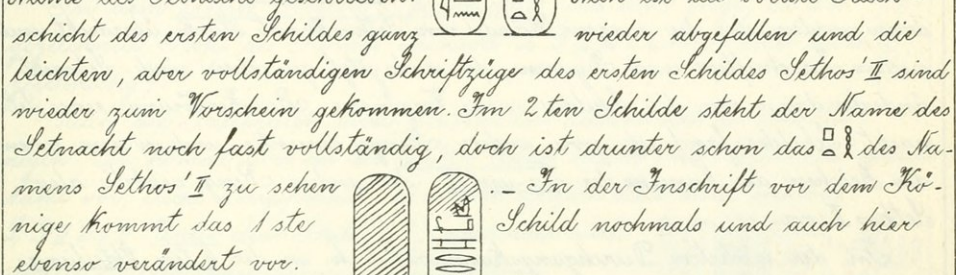 schicht des ersten Schildes ganz wieder abgefallen und die
leichten, aber vollständigen Schriftzüge des ersten Schildes Sethos' II sind
wieder zum Vorschein gekommen. Im 2ten Schilde steht der Name des
Setnacht noch fast vollständig, doch ist drunter schon das des Na-
mens Sethos' II zu sehen . – In der Inschrift vor dem Kö-
nige kommt das 1ste Schild nochmals und auch hier
ebenso verändert vor.